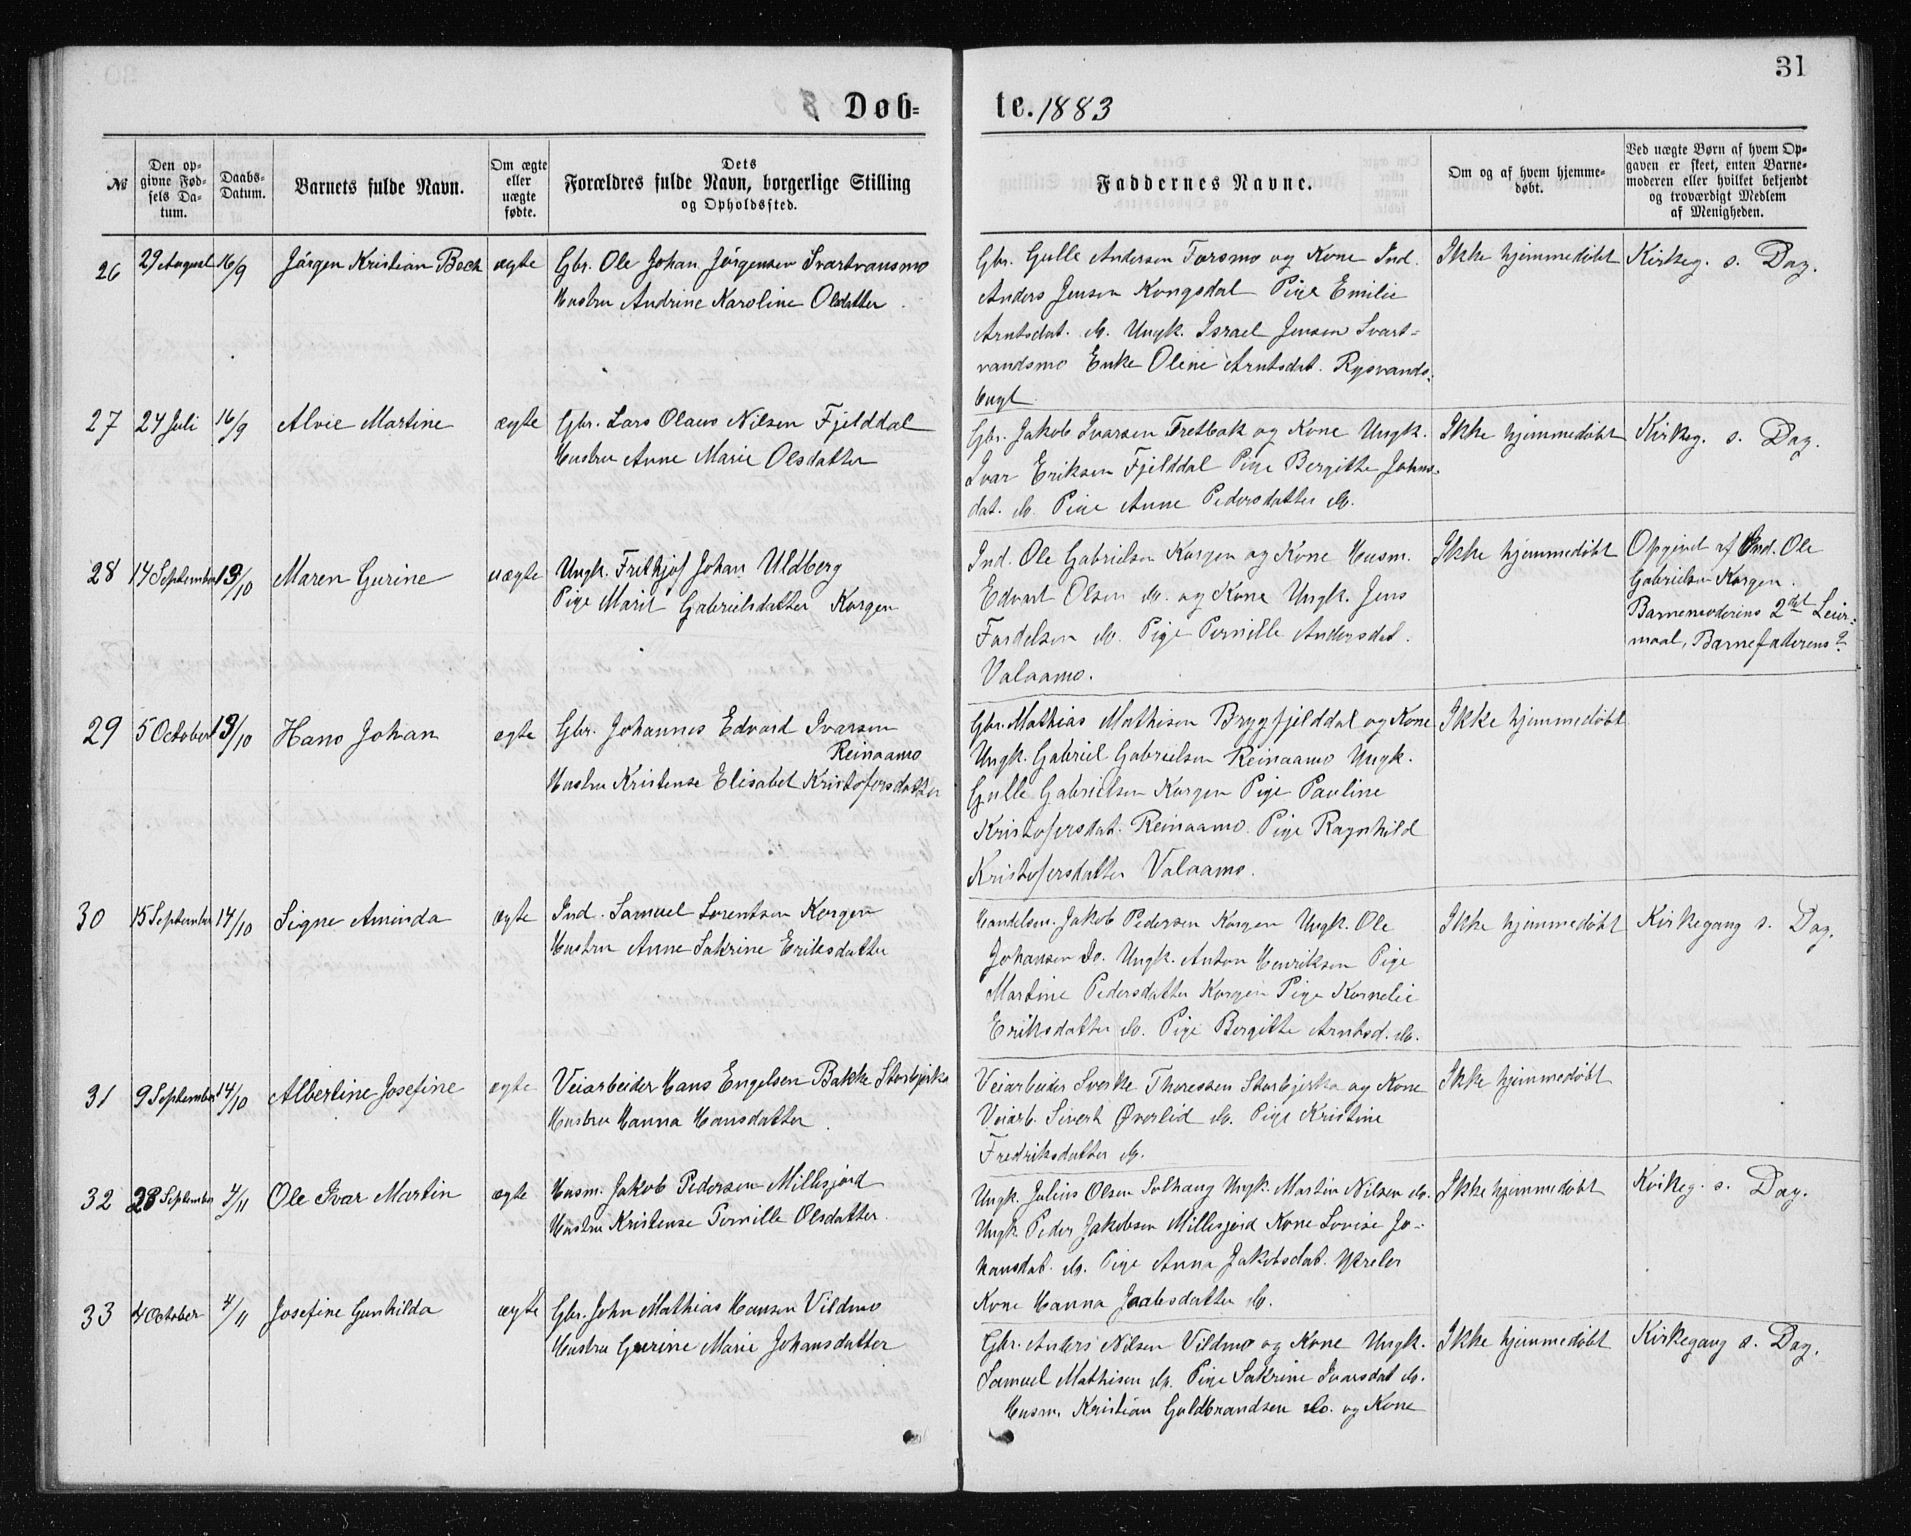 31
Døb=
te. 1883
№
Den op-
givne Fød-
sels Da-
tum.
Daabs-
Datum.
Barnets fulde Navn.
Om ægte
eller
uægte
fødte.
Dets
Forældres fulde Navn, borgerlige Stilling
og Opholdssted.
Faddernes Navne.
Om og af hvem hjemme-
døbt.
Ved uægte Børn af hvem Op-
gaven er skeet, enten Barne-
moderen eller hvilket bekjendt
og troværdigt Medlem
af Menigheden.
26 29 August 16/9 Jörgen Kristian Beck ægte
Gbr. Ole Johan Jörgensen Svartvansmo
Hustru Andrine Karoline Olsdatter.
Gbr. Gulle Andersen Forsmo og Kone Ind.
Anders Jensen Kongsdal Pige Emilie
Arntsdat. do. Ungk. Israel Jensen Svart-
vandsmo Enke Oline Arntsdat. Rysvands-
bugt
Ikke hjemmedøbt
Kirkeg. s. Dag.
27 24 Juli 16/9 Alvie Martine ægte
Gbr. Lars Olaus Nilsen Fjelddal
Hustru Anne Marie Olsdatter
Gbr. Jakob Ivarsen Tretbak og Kone Ungk.
Ivar Eriksen Fjelddal Pige Bergitte Johns-
dat. do. Pige Anne Pedersdatter do.
Ikke hjemmedøbt
Kirkeg. s. Dag.
28 14 September 13/10 Maren Gurine uægte
Ungk. Frithjof Johan Uldberg
Pige Marit Gabrielsdatter Korgen
Ind. Ole Gabrielsen Korgen og Kone Husm.
Edvart Olsen do. og Kone Ungk. Jens
Fordelsen do. Pige Pernille Andersdat.
Valaamo.
Ikke hjemmedøbt
Opgivet af Ind. Ole
Gabrielsen Korgen.
Barnemoderens 2det Leier-
maal, Barnefaderens ?
29 5 October 13/10 Hans Johan ægte
Gbr. Johannes Edvard Ivarsen
Reinaamo
Hustru Kristense Elisabet Kristofersdatter
Gbr. Mathias Mathisen Brygfjelddal og Kone
Ungk. Gabriel Gabrielsen Reinaamo Ungk.
Gulle Gabrielsen Korgen Pige Pauline
Kristofersdat. Reinaamo. Pige Ragnhild
Kristofersdatter Valaamo.
Ikke hjemmedøbt
30 15 September 14/10 Signe Aminda ægte
Ind. Samuel Lorentsen Korgen
Hustru Anne Sakrine Eriksdatter
Handelsm. Jakob Pedersen Korgen Ungk. Ole
Johansen Do. Ungk. Anton Henriksen Pige
Martine Pedersdatter Korgen Pige Kornelie
Eriksdatter do. Pige Bergitte Arntsd. do.
Ikke hjemmedøbt
Kirkegang s. Dag.
31 9 September 14/10 Albertine Josefine ægte
Veiarbeider Hans Engelsen Bakke Storbjerka
Hustru Hanna Hansdatter.
Veiarbeider Sverke Thoressen Storbjerka og Kone
Veiarb. Sivert Øverlid do. Pige Kristine
Fredriksdatter do.
Ikke hjemmedøbt
32 28 September 4/11 Ole Ivar Martin ægte
Husm. Jakob Pedersen Millesjord
Hustru Kristense Pernille Olsdatter.
Ungk. Julius Olsen Solhaug Ungk. Martin Nilsen do.
Ungk. Peder Jakobsen Millesjord Kone Lovise Jo-
hansdat. do. Pige Anna Jakobsdat.
Kone Hanna Jaabsdatter do.
Ikke hjemmedøbt
Kirkeg. s. Dag.
33 4 October 4/11 Josefine Gunhilda ægte
Gbr. John Mathias Hansen Vildmo
Hustru Gurine Marie Johansdatter
Gbr. Anders Nilsen Vildmo og Kone Ungk.
Samuel Mathisen do. Pige Sakrine Ivarsdat do.
Husm. Kristian Guldbrandsen do. og Kone
Ikke hjemmedøbt
Kirkegang s. Dag.